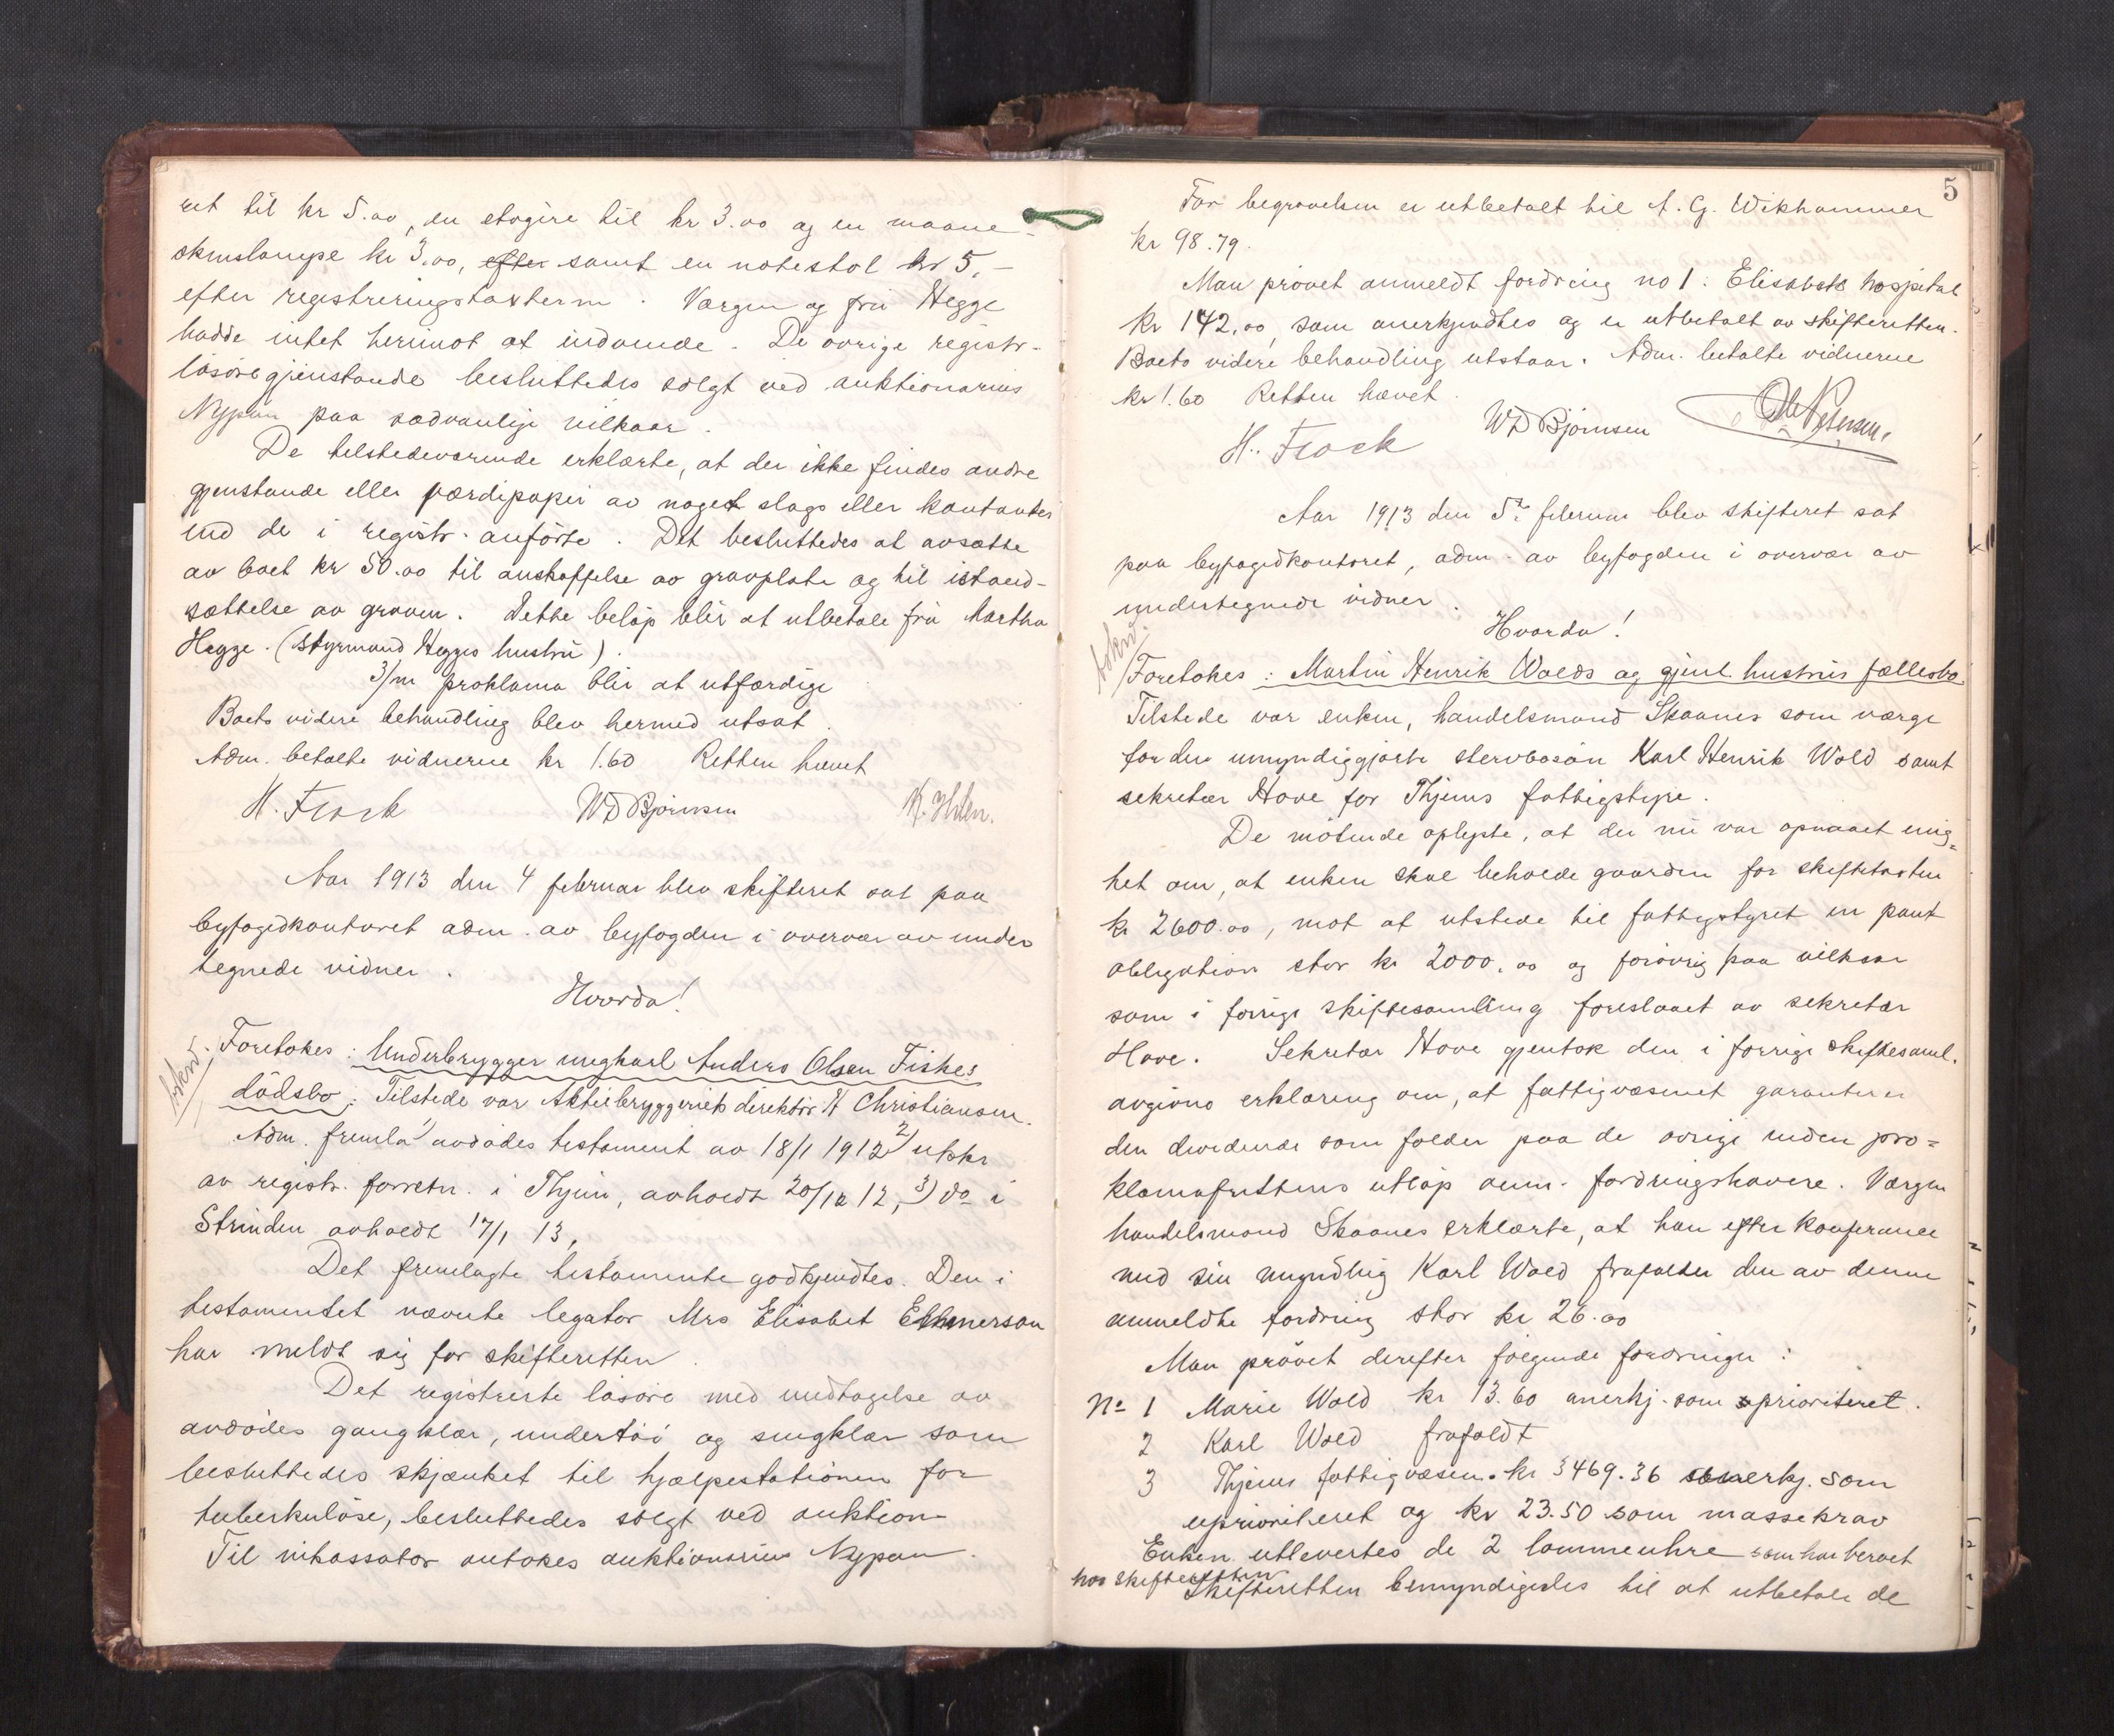 ret til kr 5.00, en etagire til kr 3.00 og en maane-
skinslampe kr 3.00, efter samt en notestol kr 5.-
efter registreringstaxterne. Værgen og fru Hegge
hadde intet herimot at indvende. De øvrige registr.
løsøregjenstande besluttedes solgt ved auktionarius
Nypan paa sædvanlige vilkaar.
De tilstedeværende erklærte, at der ikke findes andre
gjenstande eller værdipapir av noget slags eller kontanter
end de i registr. anførte. Det besluttedes at avsætte
av boet kr 50.00 til anskaffelse av gravplate og til istand-
sættelse av graven. Dette beløp blir at utbetale fru Martha
Hegge. (styrmand Hegges hustru).
3/m proklama blir at utfærdige
Boets videre behandling blev hermed utsat.
Adm. betalte vidnerne kr 1.60 Retten hævet
H. Frock WD Bjørnsen K. Ihlen.
Aar 1913 den 4 februar blev skifteret sat paa
byfogdkontoret adm. av byfogden i overvær av under
tegnede vidner.
Hvorda!
Foretokes: Underbrygger ungkarl Anders Olsen Fiskes
dødsbo: Tilstede var Aktiebryggeriets direktør H Christiansen.
Adm. fremla 1) avdødes testament av 18/1 1912 2) utskr
av registr. forretn. i Thjem, avholdt 20/12 12, 3) do i
Strinden avholdt 17/1 13,
Det fremlagte testamente godkjendtes. Den i
testamentet nævnte legatar Mrs Elisabet
har meldt sig for skifteretten.
Det registrerte løsøre med undtagelse av
avdødes gangklær, undertøi og sengklær som
besluttedes skjænket til hjælpestationen for
tuberkuløse, besluttedes solgt ved auktion
Til inkassator antokes auktionarius Nypan.
5
For begravelsen er utbetalt til A. G. Wikhammer
kr 98.79.
Man prøvet anmeldt fordring no 1: Elisabets hospital
kr 142,00 som anerkjendtes og er utbetalt av skifteretten.
Boets videre behandling utstaar. Adm. betalte vidnerne
kr 1.60 Retten hævet.
H. Frock WD Bjørnsen Petersen.
Aar 1913 den 5te februar blev skifteret sat
paa byfogedkontoret, adm. av byfogden i overvær av
undertegnede vidner.
Hvorda!
Foretokes: Martin Henrik Wolds og gjenl. hustrus fællesbo
Tilstede var enken, handelsmand Skaanes som værge
for den umyndiggjorte stervbosøn Karl Henrik Wold samt
sekretær Hove for Thjems fattigstyre.
De møtende oplyste, at der nu var opnaaet enig=
het om, at enken skal beholde gaarden for skiftetaxten
kr 2600.00, mot at utstede til fattigstyret en pant
obligation stor kr 2000.00 og forøvrig paa vilkaar
som i forrige skiftesamling foreslaaet av sekretær
Hove. Sekretær Hove gjentok den i forrige skiftesaml.
avgivne erklæring om, at fattigvæsenet garanterer
den dividende som falder paa de øvrige inden pro=
klamafristens utløp anm. fordringshavere. Værgen
handelsmand Skaanes erklærte, at han efter konferance
med sin myndling Karl Wold frafalder den av denne
anmeldte fordring stor kr 26.00
Man prøvet derefter følgende fordringer:
No 1 Marie Wold kr 13.60 anerkj. som uprioriteret.
2 Karl Wold frafaldt
3 Thjems fattigvæsen kr 3469.36 anerkj. som
uprioriteret og kr 23.50 som massekrav
Enken utlevertes de 2 lommeuhre som har beroet
hos skifteretten
Skifteretten bemyndigedes til at utbetale de